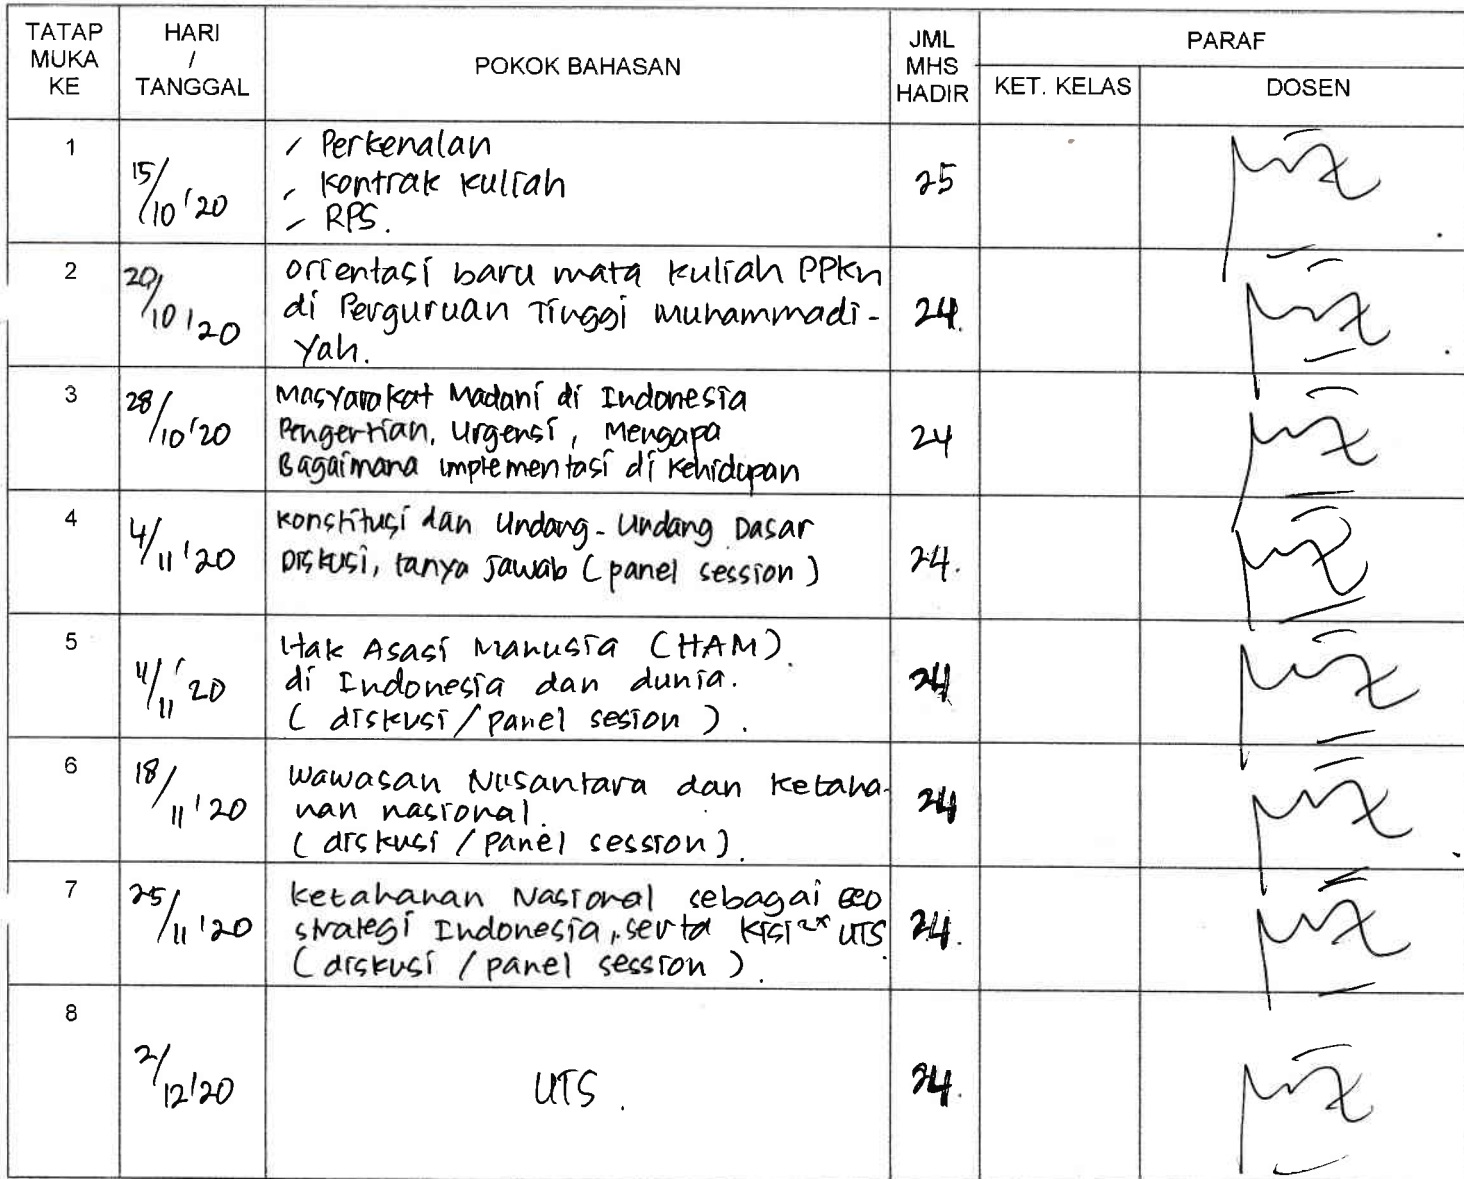 TATAP MUKA KE
HARI / TANGGAL
POKOK BAHASAN
JML MHS HADIR
PARAF
KET. KELAS
DOSEN
1
15/10'20
- Perkenalan
- Kontrak Kuliah
- RPS.
25
2
20/10'20
orientasi baru mata kuliah PPKn
di Perguruan Tinggi Muhammadi-
yah.
24.
3
28/10'20
Masyarakat Madani di Indonesia
Pengertian, Urgensi, Mengapa
Bagaimana implementasi di Kehidupan
24
4
4/11'20
Konstitusi dan Undang-Undang Dasar
Diskusi, tanya Jawab (panel session)
24.
5
11'20
Hak Asasi Manusia (HAM).
di Indonesia dan dunia.
(diskusi/panel sesion).
24
6
18/11'20
Wawasan Nusantara dan Ketaha-
nan nasional.
(diskusi / panel session).
24
7
25/11'20
Ketahanan Nasional sebagai GEO
strategi Indonesia, serta kisi2x UTS
(diskusi / panel session).
24.
8
2/12'20
UTS.
24.